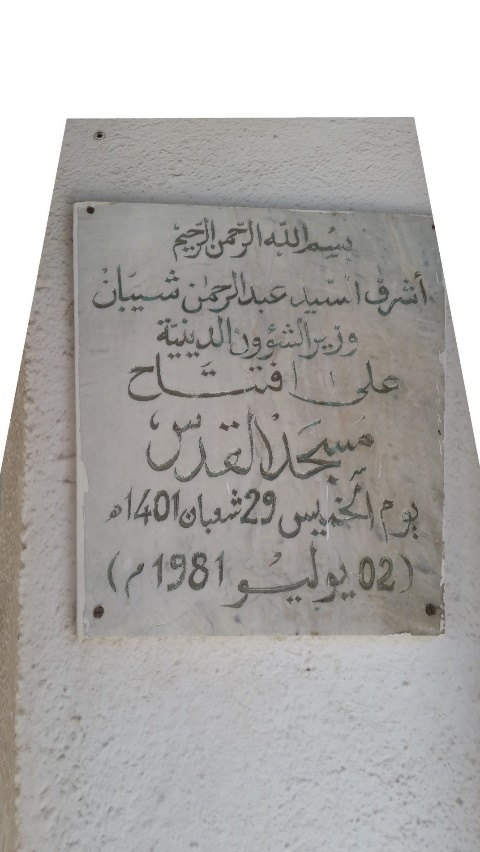 بسم الله الرحمن الرحيم
أشرف السيد عبدالرحمن شيبان
وزير الشؤون الدينية
على افتتاح
مسجد القدس
يوم الخميس 29 شعبان 1401هـ
(02 يوليو 1981 م)